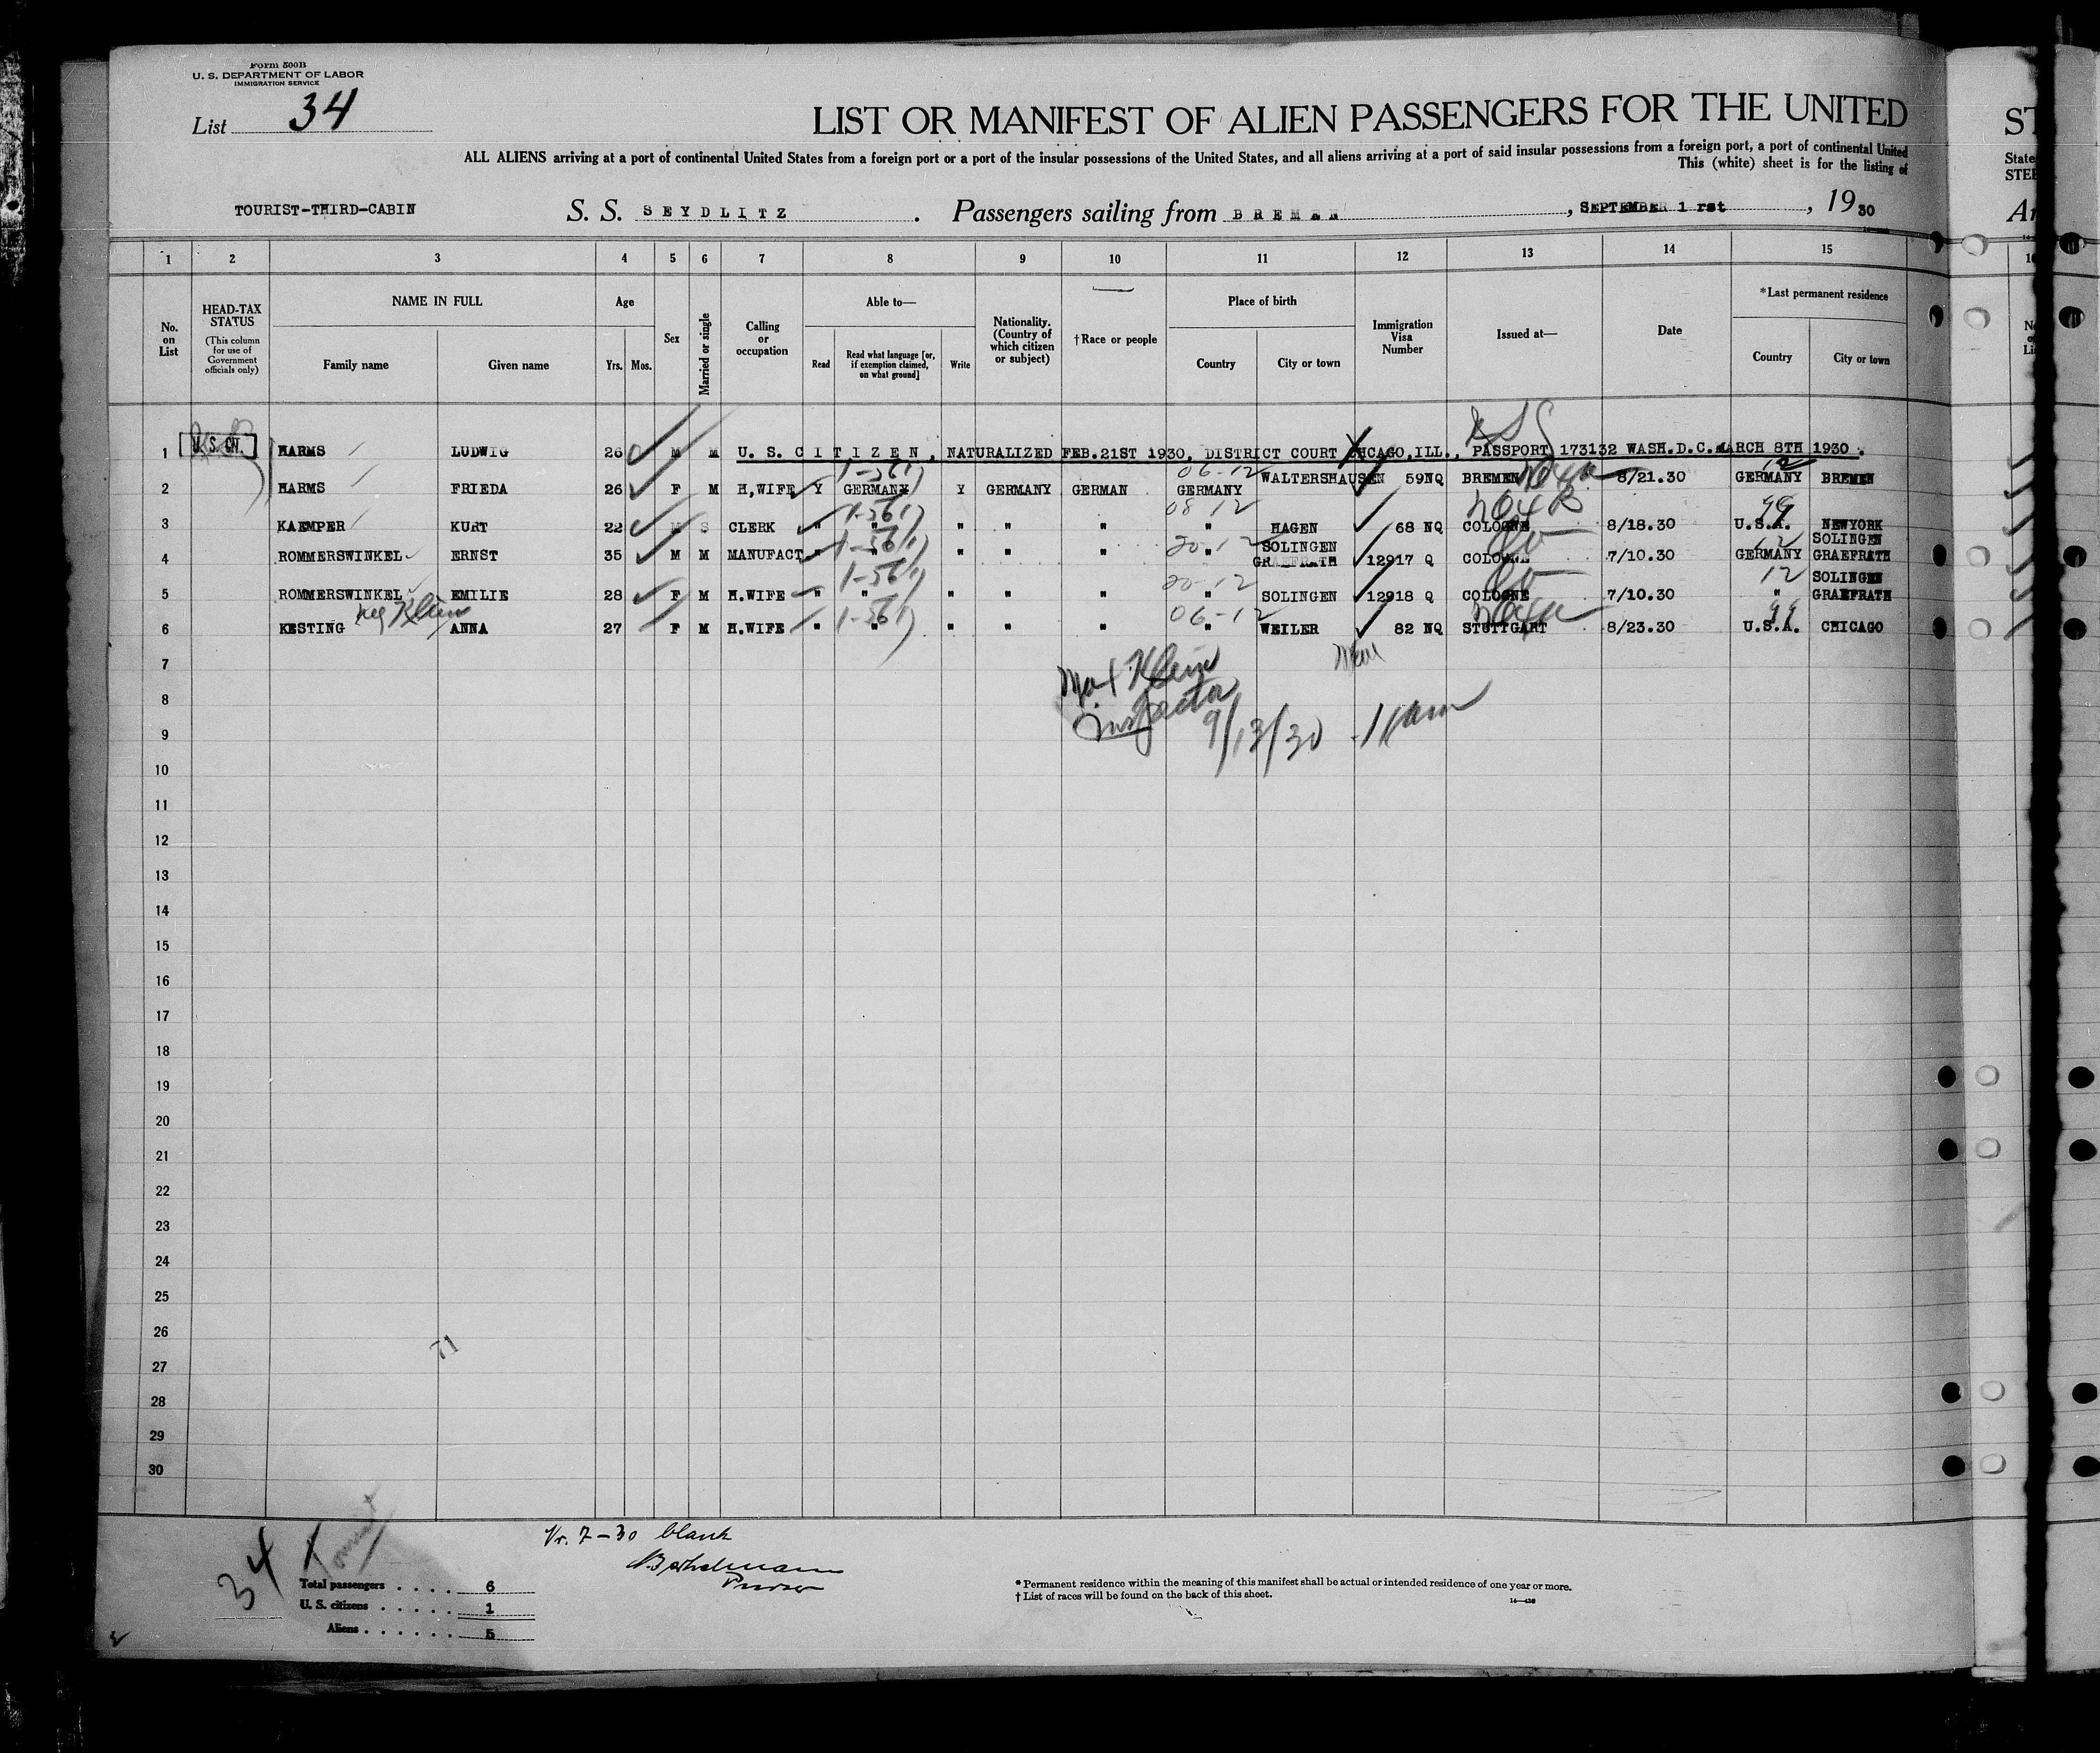 Form 500B
U. S. DEPARTMENT OF LABOR
IMMIGRATION SERVICE
List 34
LIST OR MANIFEST OF ALIEN PASSENGERS FOR THE UNITED
ALL ALIENS arriving at a port of continental United States from a foreign port or a port of the insular possessions of the United States, and all aliens arriving at a port of said insular possessions from a foreign port, a port of continental United
This (white) sheet is for the listing of
TOURIST-THIRD-CABIN S. S. SEYDLITZ . Passengers sailing from BREMEN , SEPTEMBER 1 rst , 1930
1 2 3 4 5 6 7 8 9 10 11 12 13 14 15
No. on List
HEAD-TAX STATUS
(This column for use of Government officials only)
NAME IN FULL
Family name Given name
Age
Yrs. Mos.
Sex
Married or single
Calling or occupation
Able to—
Read
Read what language [or, if exemption claimed, on what ground]
Write
Nationality. (Country of which citizen or subject)
†Race or people
Place of birth
Country City or town
Immigration Visa Number
Issued at—
Date
*Last permanent residence
Country City or town
1 U.S. CN. HARMS LUDWIG 26 M M U. S. C I T I Z E N , NATURALIZED FEB.21ST 1930, DISTRICT COURT CHICAGO,ILL., PASSPORT 173132 WASH.D.C.MARCH 8TH 1930 .
2 HARMS FRIEDA 26 F M H,WIFE Y GERMANY Y GERMANY GERMAN GERMANY WALTERSHAUSEN 59NQ BREMEN 8/21.30 GERMANY BREMEN
3 KAEMPER KURT 22 M S CLERK " " " " " " HAGEN 68 NQ COLOGNE 8/18.30 U.S.A. NEWYORK
4 ROMMERSWINKEL ERNST 35 M M MANUFACT " " " " " " SOLINGEN GRAEFRATH 12917 Q COLOGNE 7/10.30 GERMANY SOLINGEN GRAEFRATH
5 ROMMERSWINKEL EMILIE 28 F M H.WIFE " " " " " " SOLINGEN 12918 Q COLOGNE 7/10.30 " SOLINGEN GRAEFRATH
6 KESTING neg Klein ANNA 27 F M H.WIFE " " " " " " WEILER 82 NQ STUTTGART 8/23.30 U.S.A. CHICAGO
7
8
9
10
11
12
13
14
15
16
17
18
19
20
21
22
23
24
25
26
27
28
29
30
Max Klein
Inspector
9/13/30 11am
71
34
Nr. 7-30 blank
Purser
Total passengers . . . . 6
U. S. citizens . . . . . 1
Aliens . . . . . . 5
* Permanent residence within the meaning of this manifest shall be actual or intended residence of one year or more.
† List of races will be found on the back of this sheet.